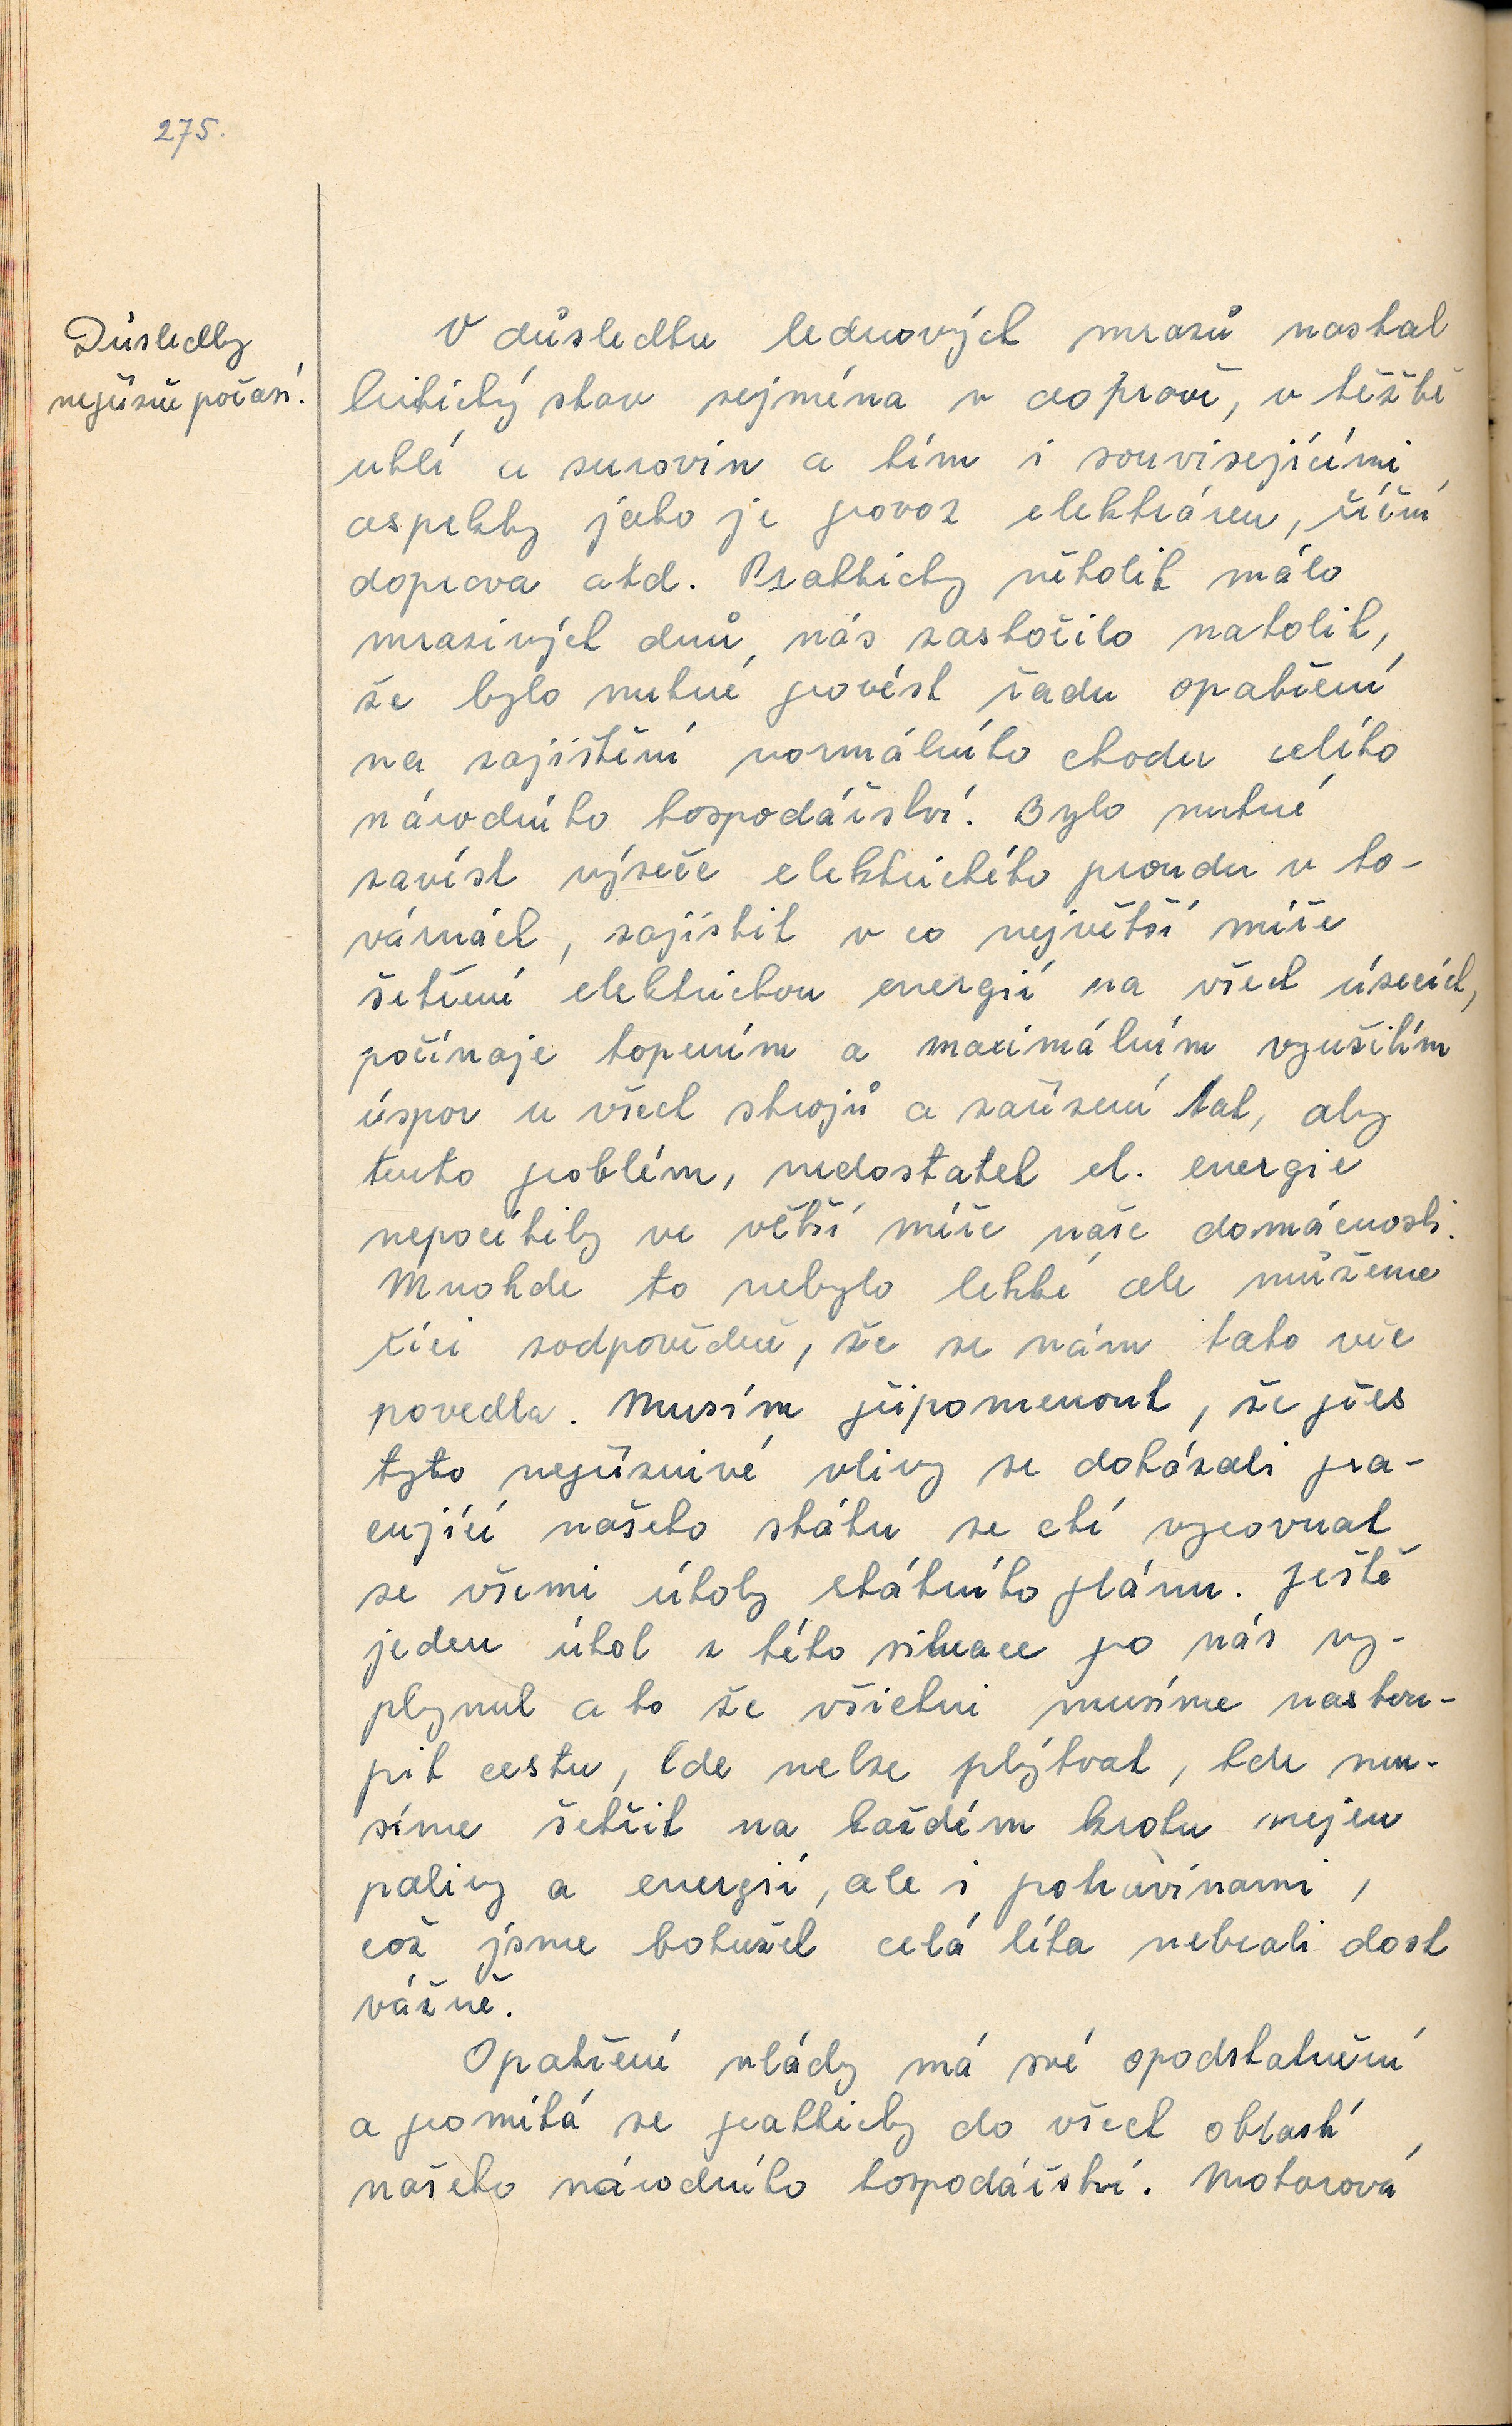 275.
Důsledky
nepřízně počasí.
V důsledku lednových mrazů nastal
kritický stav zejména v dopravě, v těžbě
uhlí a surovin a tím i souvisejícími
aspekty jako je provoz elektráren, říční
doprava atd. Prakticky několik málo
mrazivých dnů, nás zaskočilo natolik,
že bylo nutné provést řadu opatření
na zajištění normálního chodu celého
národního hospodářství. Bylo nutné
zavést výseče elektrického proudu v to-
várnách, zajistit v co největší míře
šetření elektrickou energií na všech úsecích,
počínaje topením a maximálním využitím
úspor u všech strojů a zařízení tak, aby
tento problém, nedostatek el. energie
nepocítily ve větší míře naše domácnosti.
Mnohde to nebylo lehké ale můžeme
říci zodpovědně, že se nám tato věc
povedla. Musím připomenout, že přes
tyto nepříznivé vlivy se dokázali pra-
cující našeho státu se ctí vyrovnat
se všemi úkoly státního plánu. Ještě
jeden úkol z této situace pro nás vy-
plynul a to že všichni musíme nastou-
pit cestu, kde nelze plýtvat, kde mu-
síme šetřit na každém kroku nejen
palivy a energií, ale i potravinami,
což jsme bohužel celá léta nebrali dost
vážně.
Opatření vlády má své opodstatnění
a promítá se prakticky do všech oblastí
našeho národního hospodářství. Motorová